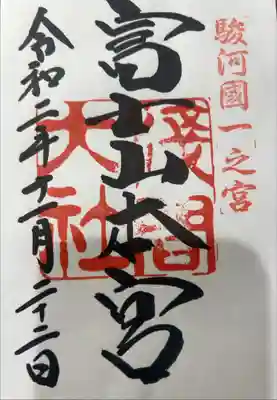 駿河國一之宮
富士山本宮
淺間大社
令和二年十二月二十二日